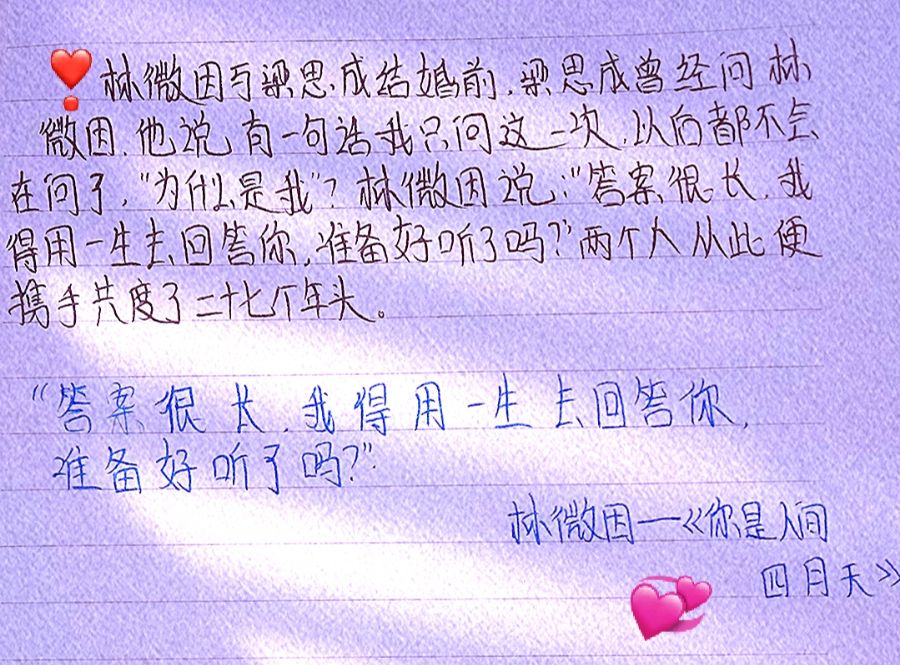 林微因与梁思成结婚前,梁思成曾经问林
微因,他说,有一句话我只问这一次,以后都不会
在问了,"为什么是我"?林微因说:"答案很长,我
得用一生去回答你,准备好听了吗?"两个人从此便
携手共度了二十七个年头。
"答案很长,我得用一生去回答你,
准备好听了吗?"
林微因——《你是人间
四月天》